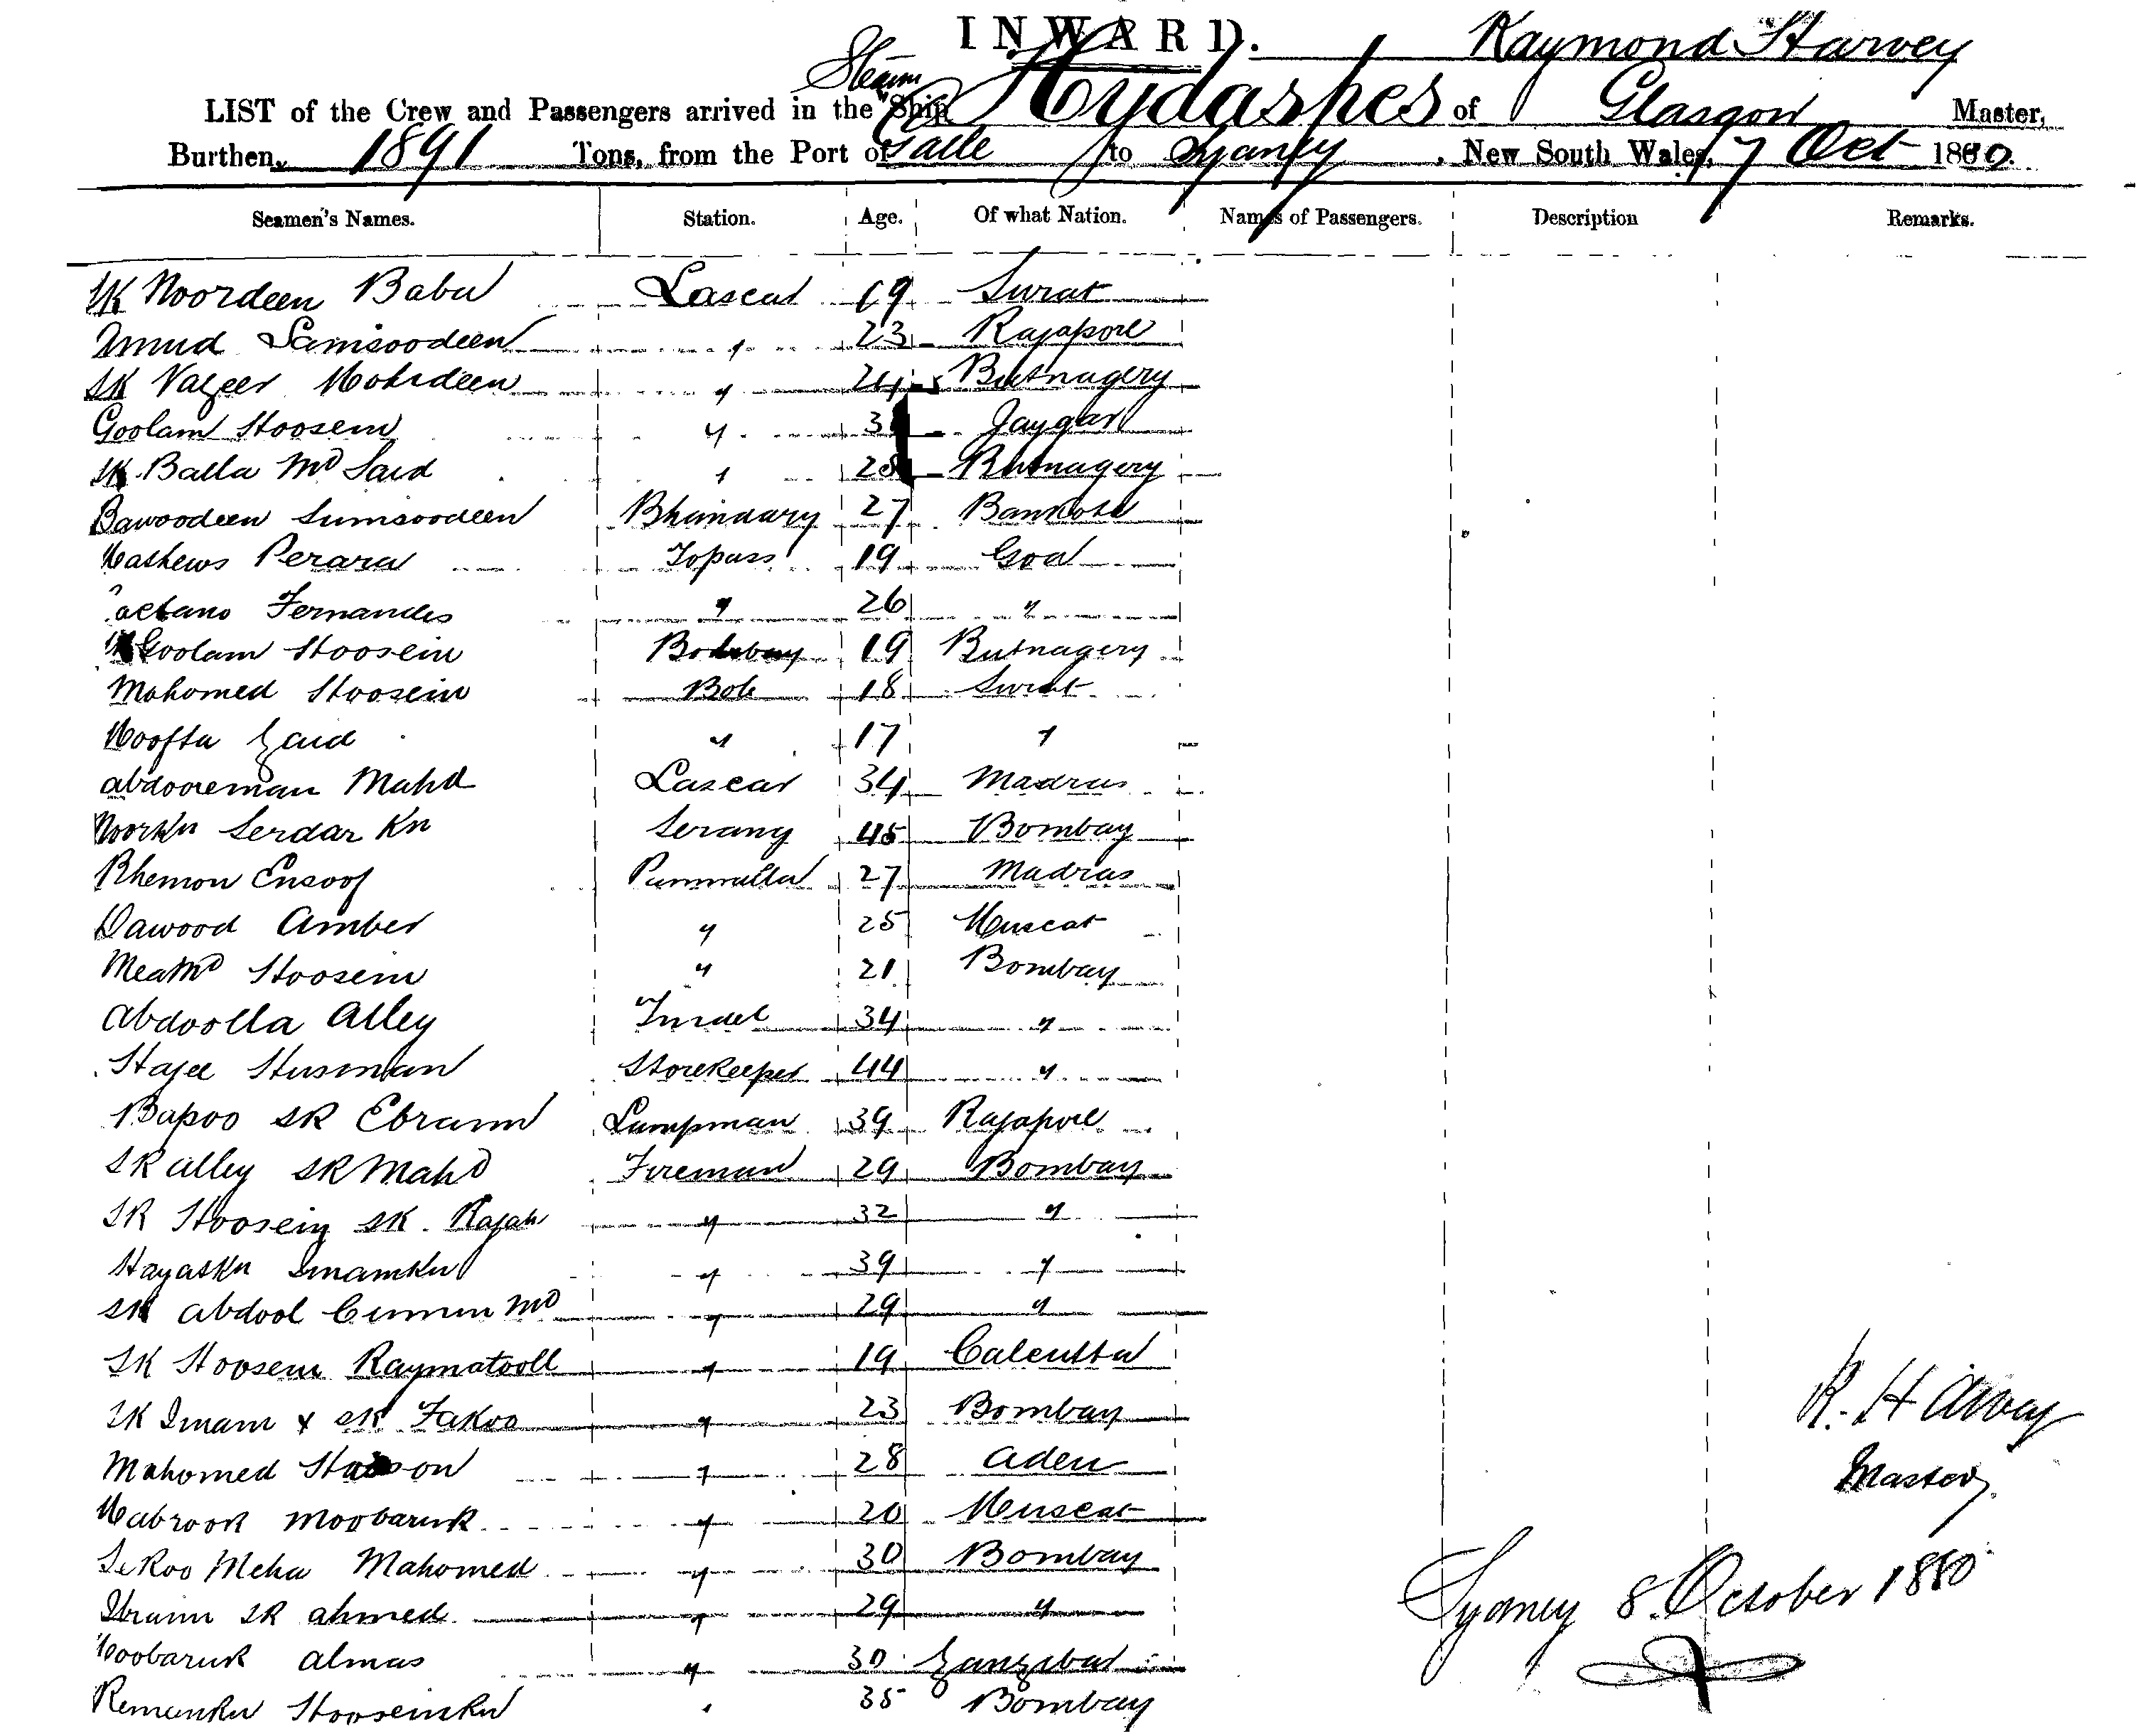 INWARD. Raymond Harvey
Steam
LIST of the Crew and Passengers arrived in the Ship Hydaspes of Glasgow Master,
Burthen, 1891 Tons, from the Port of Galle to Sydney, New South Wales, 7 Oct 1880.
Seamen's Names. Station. Age. Of what Nation. Names of Passengers. Description Remarks.
SK Noordeen Baba Lascar 19 Surat
Samsoodeen " 23 Rajapore
SK Vazeer Mohideen " 24 Rutnagery
Goolam Hoosein " Jaygar
SK Balla Md Said " 28 Rutnagery
Bawoodeen Sumsoodeen Bhundary 27 Bankote
Mathews Perara Topass 19 Goa
Caetano Fernandes " 26 "
Goolam Hoosein 19 Rutnagery
Mahomed Hoosein 18 Surat
Zaid " 17 "
Abdooreman Mahd Lascar 34 Madras
Noorkn Serdar Kn Serang 45 Bombay
Rhemon Ensoof 27 Madras
Dawood Amber " 25 Muscat
Mea Md Hoosein " 21 Bombay
Abdoolla Alley Tindel 34 "
Hajee Husman Storekeeper 44 "
Bapoo SK Ebraim Lampman 39 Rajapore
SK Alley SK Mahd Fireman 29 Bombay
SK Hoosein SK. Rajah " 32 "
Hayatkn Imamkn " 39 "
SK Abdool Md " 29 "
SK Hoosein Raymatooll " 19 Calcutta
SK Imam x SK Fakoo " 23 Bombay
Mahomed " 28 Aden
Mabrook Moobaruk " 20 Muscat
Meha Mahomed " 30 Bombay
Ibraim SK Ahmed " 29 "
Moobaruk Almas " 30 Zanzibar
Hooseinkn " 35 Bombay
R. Harvey
Master
Sydney 8 October 1880